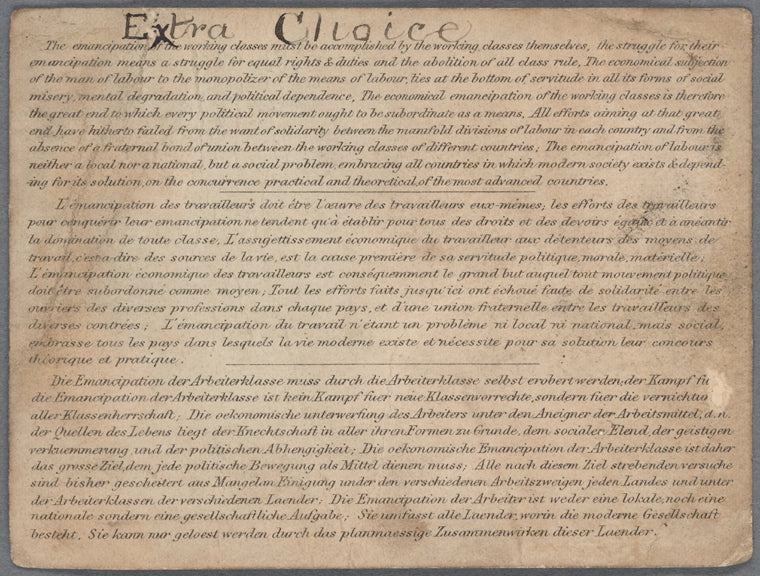 Extra Choice
The emancipation of the working classes must be accomplished by the working classes themselves, the struggle for their
emancipation means a struggle for equal rights & duties and the abolition of all class rule, The economical subjection
of the man of labour to the monopolizer of the means of labour, lies at the bottom of servitude in all its forms of social
misery, mental degradation, and political dependence, The economical emancipation of the working classes is therefore
the great end to which every political movement ought to be subordinate as a means, All efforts aiming at that great
end have hitherto fialed from the want of solidarity between the manifold divisions of labour in each country and from the
absence of a fraternal bond of union between the working classes of different countries; The emancipation of labour is
neither a local nor a national, but a social problem, embracing all countries in which modern society exists & depend-
-ing for its solution, on the concurrence practical and theoretical, of the most advanced countries.
L'émancipation des travailleurs doit être l'œuvre des travailleurs eux-mêmes, les efforts des travailleurs
pour conquérir leur emancipation ne tendent qu'à établir pour tous des droits et des devoirs égaux et à anéantir
la domination de toute classe, L'assujettissement économique du travailleur aux détenteurs des moyens de
travail, c'est-à-dire des sources de la vie, est la cause première de sa servitude politique, morale, matérielle;
L'émancipation économique des travailleurs est conséquemment le grand but auquel tout mouvement politique
doit être subordonné comme moyen; Tout les efforts faits jusqu'ici ont échoué faute de solidarité entre les
ouvriers des diverses professions dans chaque pays, et d'une union fraternelle entre les travailleurs des
diverses contrées; L'émancipation du travail n'étant un problème ni local ni national, mais social,
embrasse tous les pays dans lesquels la vie moderne existe et nécessite pour sa solution leur concours
théorique et pratique.
Die Emancipation der Arbeiterklasse muss durch die Arbeiterklasse selbst erobert werden; der Kampf fü
die Emancipation der Arbeiterklasse ist kein Kampf fuer neue Klassenvorrechte, sondern fuer die vernichtun
aller Klassenherrschaft; Die oekonomische unterwerfung des Arbeiters unter den Aneigner der Arbeitsmittel, d.n.
der Quellen des Lebens liegt der Knechtschaft in aller ihren Formen zu Grunde, dem socialen Elend, der geistigen
verkuemmerung und der politischen Abhengigkeit; Die oekonomische Emancipation der Arbeiterklasse ist daher
das grosse Ziel, dem jede politische Bewegung als Mittel dienen muss; Alle nach diesem Ziel strebenden versuche
sind bisher gescheitert aus Mangel an Einigung unter den verschiedenen Arbeitszweigen jeden Landes und unter
der Arbeiterklassen der verschiedenen Laender; Die Emancipation der Arbeiter ist weder eine lokale, noch eine
nationale sondern eine gesellschaftliche Aufgabe; Sie umfasst alle Laender, worin die moderne Gesellschaft
besteht, Sie kann nur geloest werden durch das planmaessige Zusammenwirken dieser Laender.